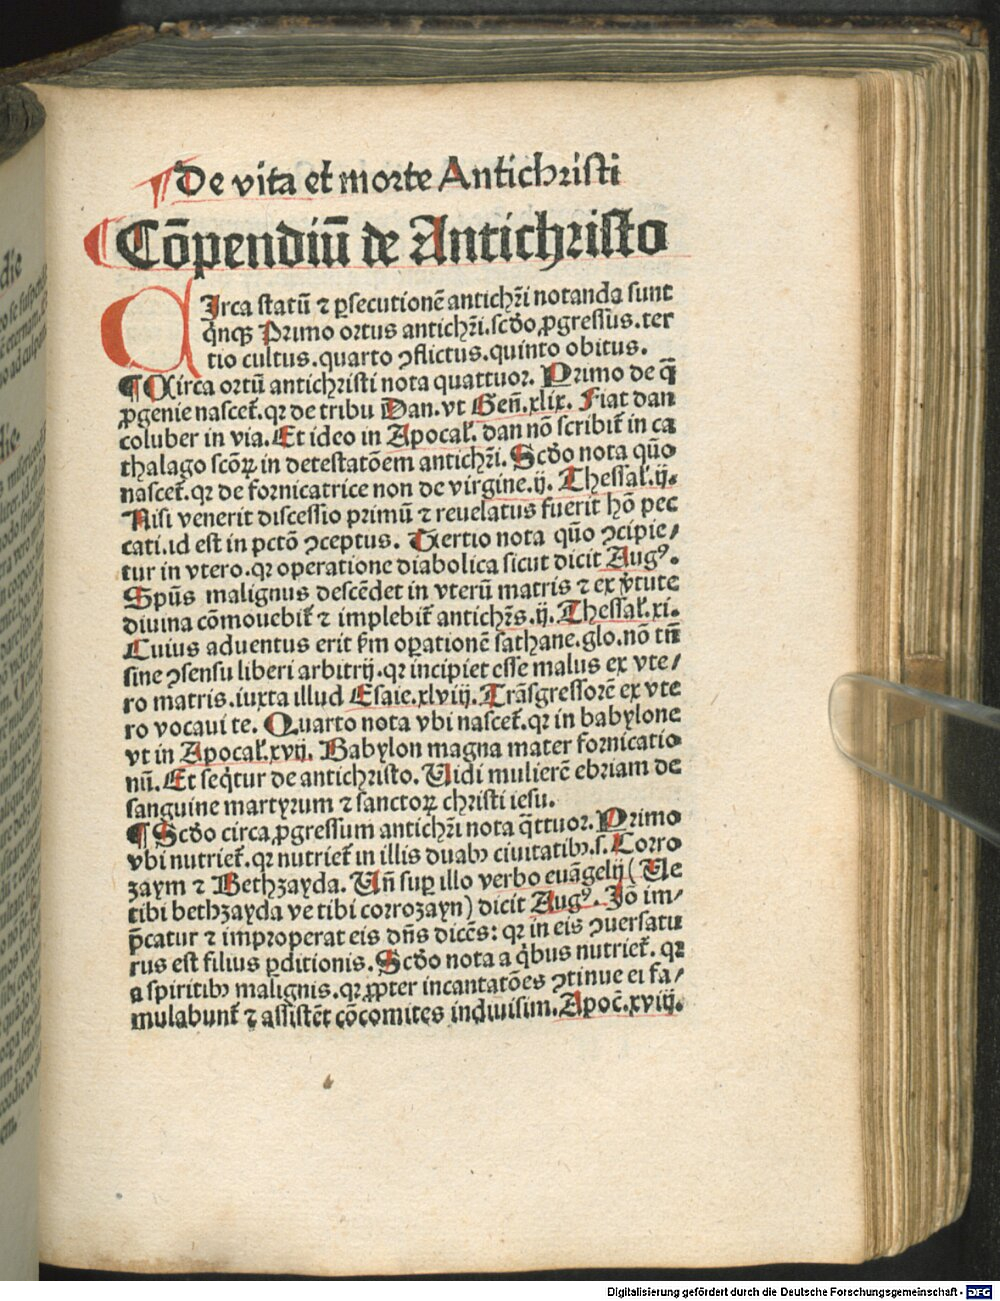 De vita et morte Antichristi
Cōpendiū de Antichristo
CIrca statū ⁊ ꝑsecutionē antichr̄i notanda sunt
q̇nqꝫ Primo ortus antichr̄i.scd̄o ꝓgressus.ter
tio cultus.quarto ꝯflictus.quinto obitus.
¶ Circa ortū antichristi nota quattuor. Primo de q̄
ꝓgenie nascet᷑.qꝛ de tribu Dan.vt Gen̄.xlix. Fiat dan
coluber in via.Et ideo in Apocal̓. dan nō scribit᷑ in ca
thalago scōꝝ in detestatōem antichr̄i. Scd̄o nota quō
nascet᷑.qꝛ de fornicatrice non de virgine.ij. Thessal̓.ij.
Nisi venerit discessio primū ⁊ reuelatus fuerit hō pec
cati.id est in pctō ꝯceptus. Tertio nota quō ꝯcipie/
tur in vtero.qꝛ operatione diabolica sicut dicit Augꝰ.
Spūs malignus descēdet in vterū matris ⁊ ex v̓tute
diuina cōmouebit᷑ ⁊ implebit᷑ antichr̄s.ij. Thessal̓.xi.
Cuius aduentus erit ẜm oꝑationē sathane.glo.nō tn̄
sine ꝯsensu liberi arbitrij.qꝛ incipiet esse malus ex vte/
ro matris.iuxta illud Esaie.xlviij. Trāsgressorē ex vte
ro vocaui te. Quarto nota vbi nascet᷑.qꝛ in babylone
vt in Apocal̓.xvij. Babylon magna mater fornicatio
nū. Et seq̇tur de antichristo. Vidi mulierē ebriam de
sanguine martyrum ⁊ sanctoꝝ christi iesu.
¶ Scd̄o circa ꝓgressum antichr̄i nota q̇ttuor. Primo
vbi nutriet᷑.qꝛ nutriet᷑ in illis duabꝰ ciuitatibꝰ.s. Corro
zaym ⁊ Bethzayda. Vn̄ suꝑ illo verbo euāgelij (Ve
tibi bethzayda ve tibi corrozayn) dicit Augꝰ. Iō im/
p̄catur ⁊ improperat eis dn̄s dicēs: qꝛ in eis ꝯuersatu
rus est filius ꝑditionis. Scd̄o nota a q̇bus nutriet᷑. qꝛ
a spiritibꝰ malignis.qꝛ ꝓpter incantatōes ꝯtinue ei fa/
mulabunt᷑ ⁊ assistēt cōcomites indiuisim. Apoc̄.xviij.
Digitalisierung gefördert durch die Deutsche Forschungsgemeinschaft - DFG